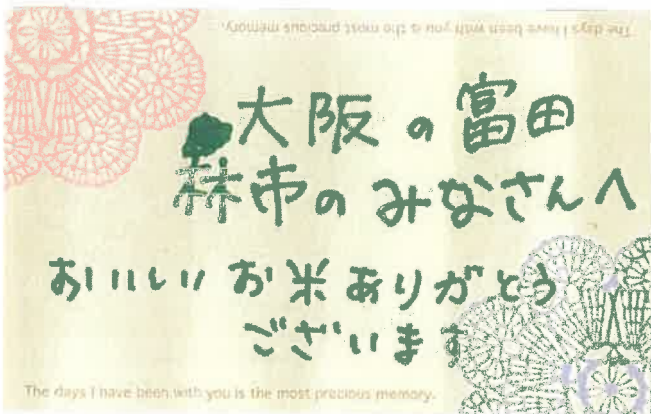 The days I have been with you is the most precious memory.
大阪の富田
林市のみなさんへ
おいしいお米ありがとう
ございます
The days I have been with you is the most precious memory.